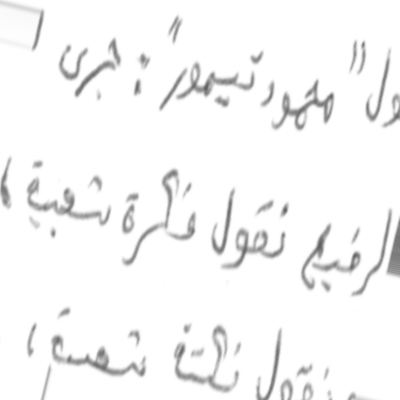 ول "محمود تيمور": جرى
الرفيع نقول فكرة شعبية،
نقول نكتة شعبية،